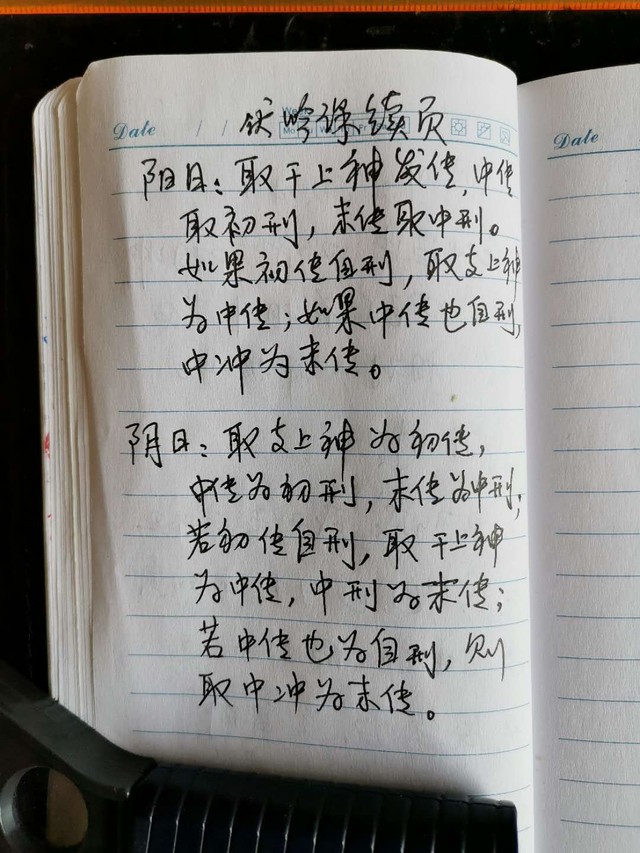 Date / / 伏吟课续页
阳日：取干上神发传，中传
取初刑，末传取中刑。
如果初传自刑，取支上神
为中传；如果中传也自刑，
中冲为末传。
阴日：取支上神为初传，
中传为初刑，末传为中刑；
若初传自刑，取干上神
为中传，中刑为末传；
若中传也为自刑，则
取中冲为末传。
Date